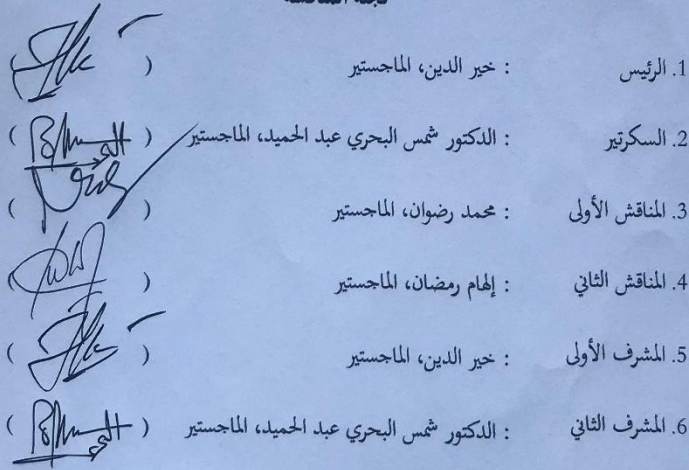 لجنة المناقشة
1. الرئيس : خير الدين، الماجستير ( )
2. السكرتير : الدكتور شمس البحري عبد الحميد، الماجستير ( )
3. المناقش الأولى : محمد رضوان، الماجستير ( )
4. المناقش الثاني : إلهام رمضان، الماجستير ( )
5. المشرف الأولى : خير الدين، الماجستير ( )
6. المشرف الثاني : الدكتور شمس البحري عبد الحميد، الماجستير ( )